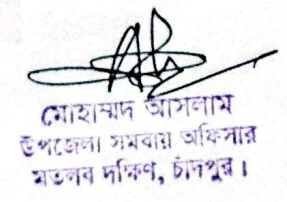 মোহাম্মদ আসলাম
উপজেলা সমবায় অফিসার
মতলব দক্ষিণ, চাঁদপুর।